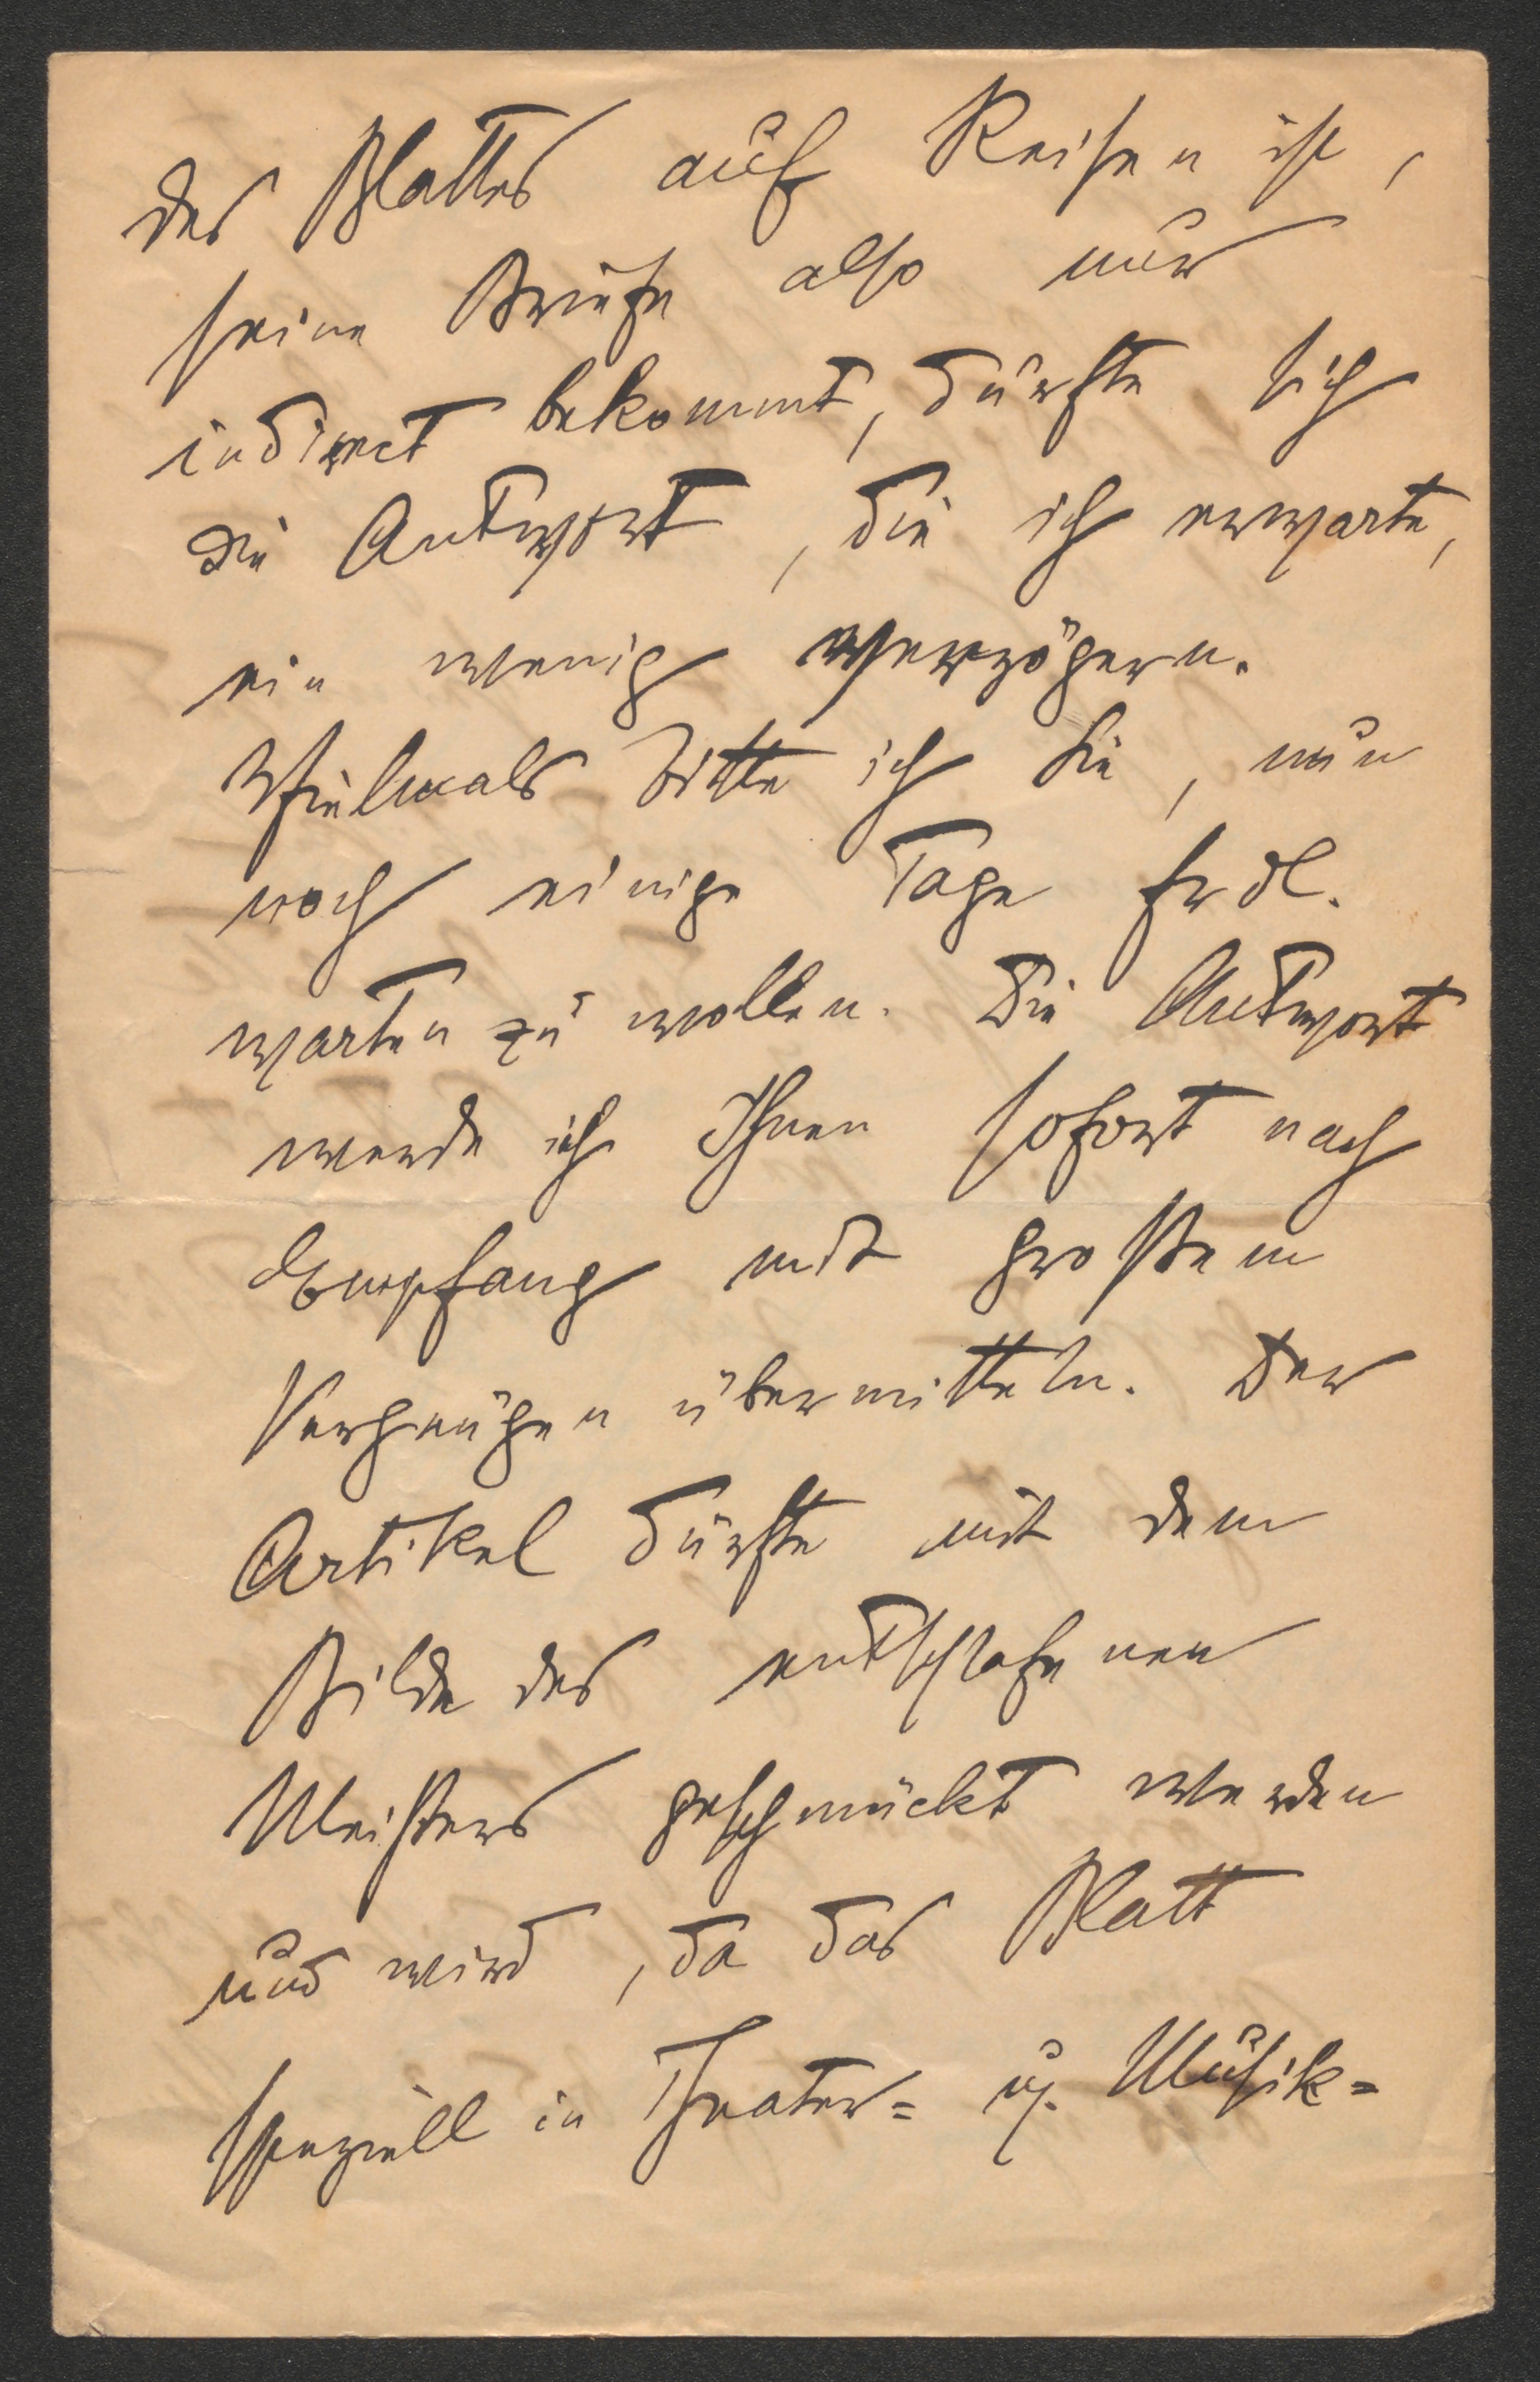 des Blattes auf Reisen ist,
seine Briefe also nur
indirect bekommt, dürfte sich
die Antwort, die ich erwarte,
ein wenig verzögern.
Vielmals bitte ich Sie, nun
noch einige Tage frdl.
warten zu wollen. Die Antwort
werde ich Ihnen sofort nach
Empfang mit großem
Vergnügen übermitteln. Der
Artikel dürfte mit dem
Bilde des entschlafenen
Meisters geschmückt werden
und wird, da das Blatt
speziell in Theater= u. Musik=